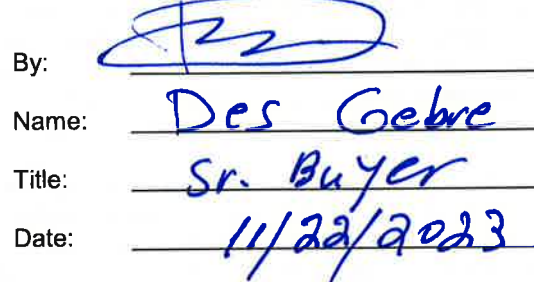 By:
Name: Des Gebre
Title: Sr. Buyer
Date: 11/22/2023